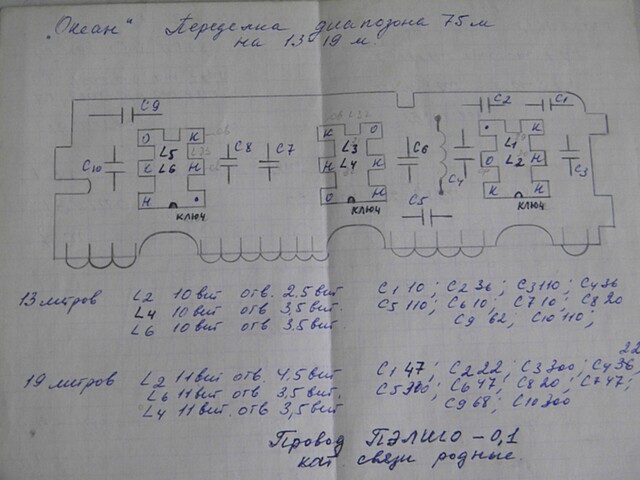 "Океан" Переделка диапозона 75м
на 13 19 м.
C9 C2 C1
О К К О • К
L5 C8 C7 L3 C6 L1
C10 К L6 Н К L4 Н C4 О L2 Н C3
Н • О Н C5 К К
ключ ключ ключ
13 метров L2 10 вит отв. 2.5 вит C1 10; C2 36; C3 110; C4 36
L4 10 вит отв 3,5 вит. C5 110; C6 10; C7 10; C8 20
L6 10 вит отв 3,5 вит. C9 62; C10 110;
22
19 метров L2 11 вит отв. 4,5 вит C1 47; C2 22; C3 300; C4 36,
L6 11 вит отв 3,5 вит. C5 300; C6 47; C8 20; C7 47;
L4 11 вит. отв 3,5 вит C9 68; C10 300
Провод ПЭЛШО-0,1
кат. связи родные.